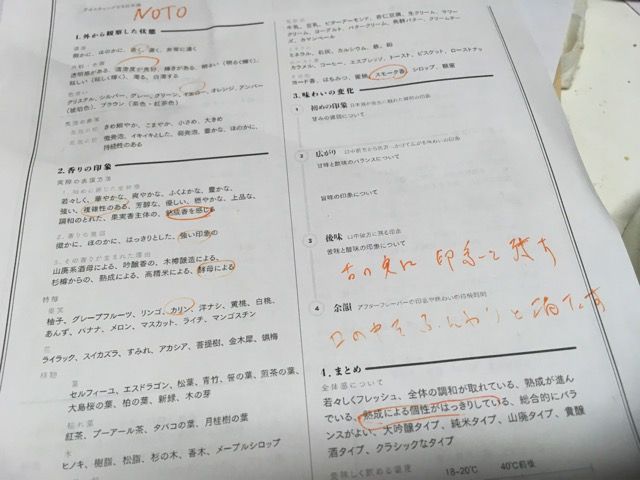 テイスティングする日本酒
NOTO
1.外から観察した状態
濃淡
透明感がある、清澄度が良好、輝きがある、明るい（明るく輝く）、
眩しい（眩しく輝く）、濁る、白濁する
クリスタル、シルバー、グレー、グリーン、イエロー、オレンジ、アンバー
（琥珀色）、ブラウン（茶色・紅茶色）
きめ細やか、こまやか、小さめ、大きめ
微発泡、イキイキとした、弱発泡、豊かな、ほのかに、
持続性のある
2.香りの印象
実際の表現方法
若々しく、華やかな、爽やかな、ふくよかな、豊かな、
強い、複雑性のある、芳醇な、優しい、穏やかな、上品な、
調和のとれた、果実香主体の、熟成香を感じる
2.香りの強弱
微かに、ほのかに、はっきりとした、強い印象の
3.その香りが生まれた理由
山廃系酒母による、吟醸香の、木樽醸造による、
杉樽からの、熟成による、高精米による、酵母による
特徴
果実
柚子、グレープフルーツ、リンゴ、カリン、洋ナシ、黄桃、白桃、
あんず、バナナ、メロン、マスカット、ライチ、マンゴスチン
花
ライラック、スイカズラ、すみれ、アカシア、菩提樹、金木犀、
植物
葉
セルフィーユ、エスドラゴン、松葉、青竹、笹の葉、煎茶の葉、
大島桜の葉、柏の葉、新緑、木の芽
枯れ葉
紅茶、プーアール茶、タバコの葉、月桂樹の葉
木
ヒノキ、樹脂、松脂、杉の木、香木、メープルシロップ
牛乳、豆乳、ビターアーモンド、杏仁豆腐、生クリーム、サワー
クリーム、ヨーグルト、バタークリーム、発酵バター、クリームチー
ズ、カマンベール
ミネラル、石灰、カルシウム、鉄、鉛
カラメル、コーヒー、エスプレッソ、トースト、ビスケット、ローストナッ
ヨード香、はちみつ、蜜蝋、スモーク香、シロップ、糖蜜
3.味わいの変化
1 初めの印象
甘みの強弱について
2 広がり
甘味と酸味のバランスについて
旨味の印象について
3 後味 口中後方に残る印象
苦味と酸味の印象について
舌の奥に 印象を残す
4 余韻 アフターフレーバーの印象や味わいの持続時間
口の中を ふんわりと 満たす
4.まとめ
全体感について
若々しくフレッシュ、全体の調和が取れている、熟成が進ん
でいる、熟成による個性がはっきりしている、総合的にバラ
ンスがよい、大吟醸タイプ、純米タイプ、山廃タイプ、貴醸
酒タイプ、クラシックなタイプ
美味しく飲める温度 18~20℃ 40℃前後